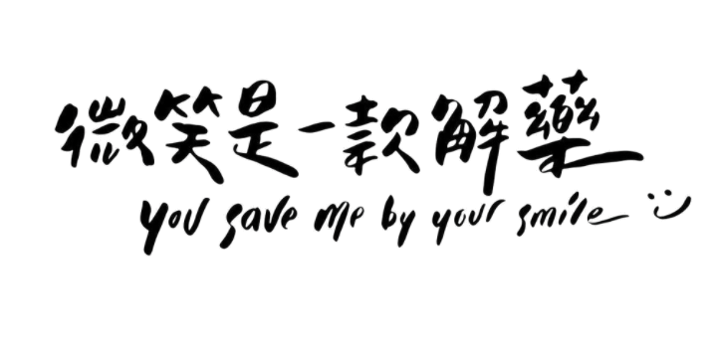 微笑是一款解藥
you gave me by your smile :)